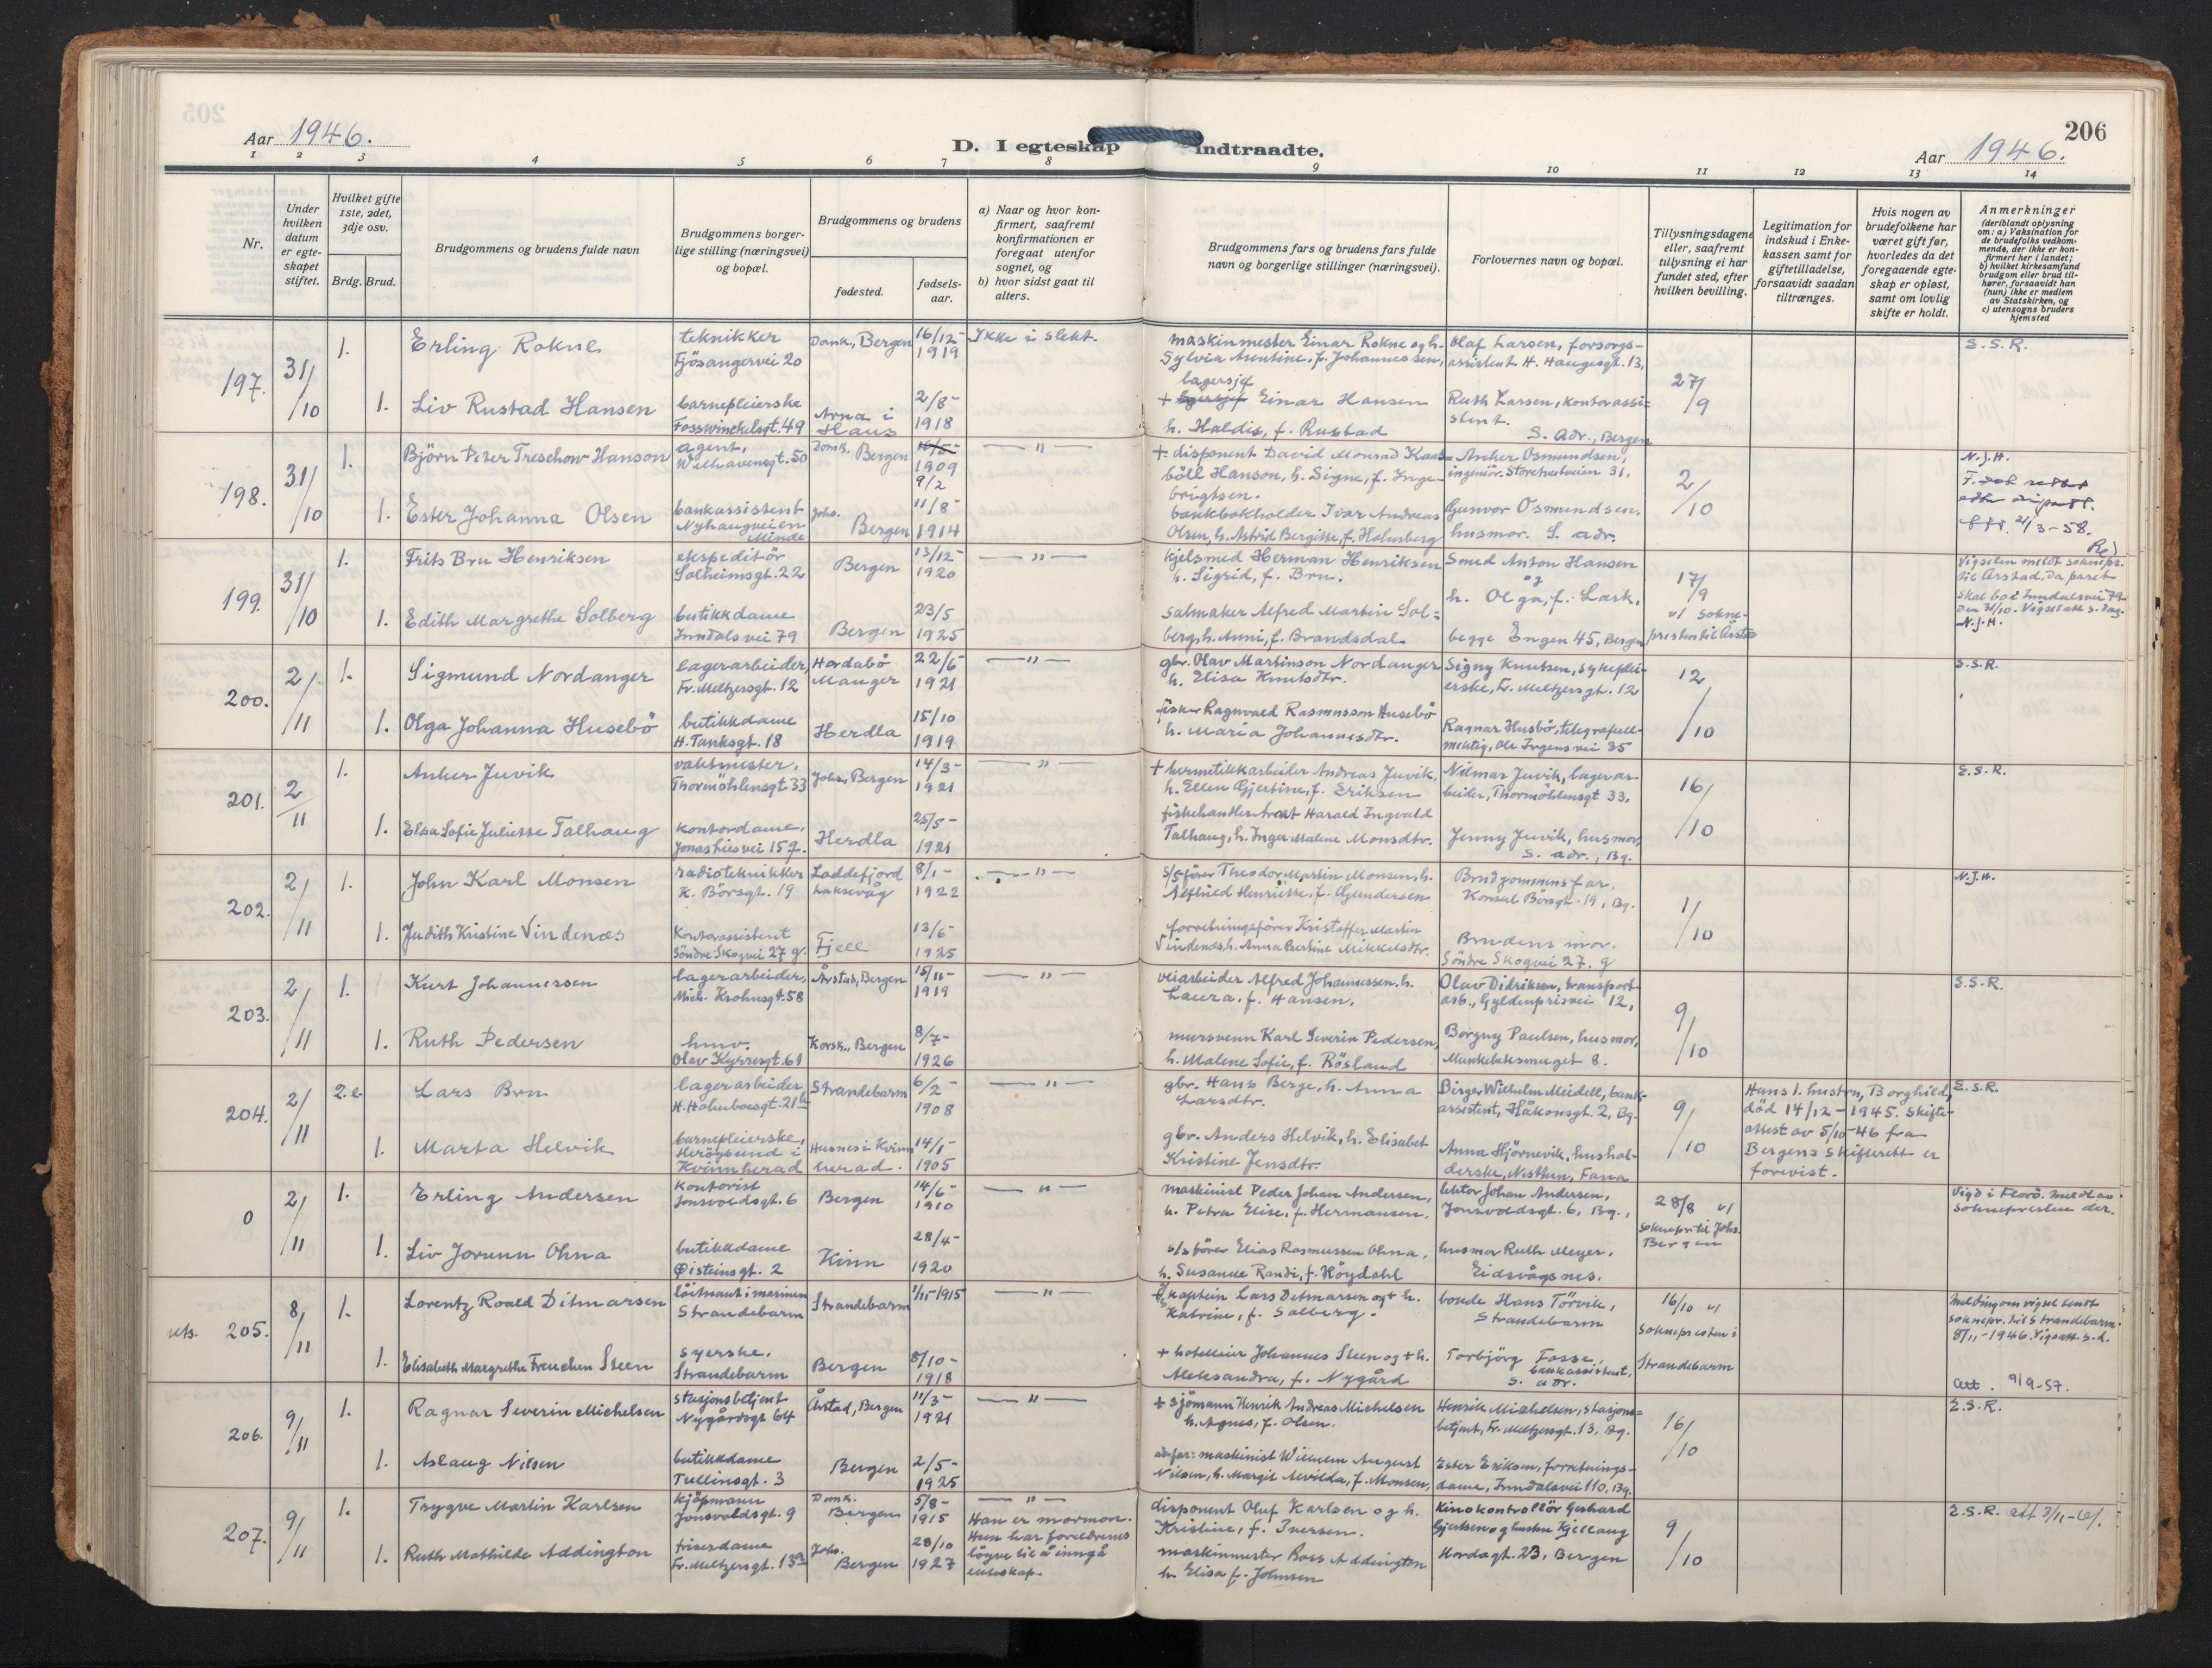 206
Aar 1946.
D. I egteskap indtraadte.
Aar 1946.
1 2 3 4 5 6 7 8 9 10 11 12 13 14
Nr.
Under hvilken datum er egteskapet stiftet.
Hvilket gifte 1ste, 2det, 3dje osv.
Brdg. Brud.
Brudgommens og brudens fulde navn
Brudgommens borgerlige stilling (næringsvei) og bopæl.
Brudgommens og brudens
fødested.
fødselsaar.
a) Naar og hvor konfirmert, saafremt konfirmationen er foregaat utenfor sognet, og
b) hvor sidst gaat til alters.
Brudgommens fars og brudens fars fulde navn og borgerlige stillinger (næringsvei).
Forlovernes navn og bopæl.
Tillysningsdagene eller, saafremt tillysning ei har fundet sted, efter hvilken bevilling.
Legitimation for indskud i Enkekassen samt for giftetilladelse, forsaavidt saadan tiltrænges.
Hvis nogen av brudefolkene har været gift før, hvorledes da det foregaaende egteskap er opløst, samt om lovlig skifte er holdt.
Anmerkninger
(deriblandt oplysning om: a) Vaksination for de brudefolks vedkommende, der ikke er konfirmert her i landet;
b) hvilket kirkesamfund brudgom eller brud tilhører, forsaavidt han (hun) ikke er medlem av Statskirken, og
c) utensogns bruders hjemsted
197. 31/10
1. Erling Rokne
teknikker Fjösangervei 20
Domk., Bergen 16/12-1919
Ikke i slekt.
maskinmester Einar Rokne og h. Sylvia Arentine, f. Johannessen,
Olaf Larsen, forsorgsassistent H. Haugesgt. 13,
27/9
E.S.R.
1. Liv Rustad Hansen
barnepleierske Fosswinckelsgt. 49
Arna i Haus 2/8-1918
+ lagersjef Einar Hansen h. Haldis, f. Rustad
Ruth Larsen, kontorassistent. S. adr., Bergen
198. 31/10
1. Björn Peter Treschow Hanson
agent, Welhavensgt. 50
Domk. Bergen 1909 9/2
— " —
+ disponent David Monrad Kaasböll Hanson, h. Signe, f. Ingebrigtsen.
Anker Osmundsen, ingeniör. Storetveitveien 31.
2/10
N.J.H.
21/3-58.
1. Ester Johanna Olsen
bankassistent Nyhaugveien Minde
Johs. Bergen 11/8-1914
bankbokholder Ivar Andreas Olsen, h. Astrid Bergitte, f. Holmberg
Gunvor Osmundsen, husmor. S. adr.
199. 31/10
1. Frits Bru Henriksen
ekspeditör Solheimsgt. 22
Bergen 13/12-1920
— " —
kjelsmed Herman Henriksen h. Sigrid, f. Bru.
Smed Anton Hansen og h. Olga, f. Lark,
17/9 v/ sokneprestentil Årstad
Vigselen meldt soknepr. til Årstad. Da paret skal bo i Inndalsvei 79. Den 31/10. Vigselatt s. dag. N.J.H.
1. Edith Margrethe Solberg
butikkdame Inndalsvei 79
Bergen 23/5 1925
salmaker Alfred Martin Solberg, h. Anni, f. Brandsdal
begge Engen 45, Bergen
200. 2/11
1. Sigmund Nordanger
lagerarbeider, Fr. Meltzersgt. 12
Hordabö Manger 22/6 1921
— " —
gbr. Olav Martinson Nordanger h. Elisa Knutsdtr.
Signy Knutsen, sykepleierske, Fr. Meltzersgt. 12
12/10
E.S.R.
1. Olga Johanna Husebö
butikkdame H. Tanksgt. 18
Herdla 15/10 1919
fisker Ragnvald Rasmusson Husebö h. Maria Johannesdtr.
Ragnar Husbö, telegrafullmektig, Ole Irgensvei 35
201. 2/11
1. Anker Juvik
vaktmester, Thormöhlensgt 33
Johs., Bergen 14/3-1921
— " —
+ hermetikkarbeider Andreas Juvik, h. Ellen Gjertine, f. Eriksen
Nilmar Juvik, lagerarbeider, Thormöhlensgt 33,
16/10
E.S.R.
1. Elsa Sofie Juliette Talhaug
kontordame, Jonas Liesvei 15g.
Herdla 25/5-1921
fiskehandler Areat Harald Ingvald Talhaug, h. Inger Malene Monsdtr.
Jenny Juvik, husmor, S. adr., Bg.
202. 2/11
1. John Karl Monsen
radiotekniker K. Börsgt. 19
Laddefjord Laksevåg 8/1-1922
— " —
s/s förer Theodor Martin Monsen, h. Alfhild Henriette, f. Gundersen
Brudgommens far, Konsul Börsgt. 19, Bg.
1/10
N.J.H.
1. Judith Kristine Vindenæs
Kontorassistent Söndre Skogvei 27 g.
Fjell 13/6-1925
forretningsförer Kristoffer Martin Vindenæs, h. Anna Bertine Mikkelsdtr.
Brudens mor. Söndre Skogvei 27. g
203. 2/11
1. Kurt Johannessen
lagerarbeider, Mich. Krohnsgt. 58
Årstad, Bergen 15/11-1919
— " —
veiarbeider Alfred Johannessen. h. Laura, f. Hansen,
Olav Didriksen, transportarb., Gyldenprisvei 12,
9/10
E.S.R.
1. Ruth Pedersen
hmv. Olav Kyrresgt. 61
Korsk., Bergen 8/7-1926
mursvenn Karl Severin Pedersen, h. Malene Sofie, f. Rösland
Borgny Paulsen, husmor, Munkebeksmuget 8.
204. 2/11
2.e Lars Bru
lagerarbeider H. Holmboesgt. 21b
Strandebarm 6/2-1908
— " —
gbr. Hans Berge, h. Anna Larsdtr.
Birger Wilhelm Meidell, bankassistent, Håkonsgt. 2, Bg.
9/10
Hans 1. hustru, Borghild, död 14/12-1945. Skifteattest av 5/10-46 fra Bergens Skifterett er forevist.
E.S.R.
1. Marta Helvik
barnepleierske, Heröysund i Kvinnherad
Husnes i Kvinnherad. 14/1-1905
gbr. Anders Helvik, h. Elisabet Kristine Jensdtr.
Anna Hjörnevik, husholderske, Nesttun, Fana
0 2/11
1. Erling Andersen
kontorist Jonsvoldsgt. 6
Bergen 14/6-1910
— " —
maskinist Peder Johan Andersen, h. Petra Elise, f. Hermansen.
lektor Johan Andersen, Jonsvoldsgt. 6, Bg.,
28/8 v/ soknepr. til Johs. Bergen
Vigd i Florö. Meld av soknepresten der.
1. Liv Jorunn Ohna
butikkdame Øisteinsgt. 2
Kinn 28/4-1920
s/s förer Elias Rasmussen Ohna, h. Susanne Randi, f. Höydahl
husmor Ruth Meyer. Eidsvågsnes.
uts. 205. 8/11
1. Lorentz Roald Ditmarsen
löitnant i marinen Strandebarm
Strandebarm 1/11-1915
— " —
kaptein Lars Detmarsen og + h. Katrine, f. Salberg.
bonde Hans Törvik, Strandebarm
16/10 v/ soknepresten i Strandebarm
Melding om vigsel sendt soknepr. til Strandebarm. 8/11-1946. Vigselatt. s.d.
Att. 9/9-57.
1. Elisabeth Margrethe Freuchen Steen
syerske, Strandebarm
Bergen 8/10-1918
+ hotelleier Johannes Steen og + h. Aleksandra, f. Nygård
Torbjörg Fosse, bankassistent, s. adr.
206. 9/11
1. Ragnar Severin Michelsen
stasjonsbetjent Nygårdsgt 64
Årstad, Bergen 11/3-1921
— " —
+ sjömann Henrik Andreas Michelsen h. Agnes, f. Olsen.
Henrik Michelsen, stasjonsbetjent, Fr. Meltzersgt. 13, Bg.
16/10
E.S.R.
1. Aslaug Nilsen
butikkdame Tullinsgt. 3
Bergen 2/5-1925
adfar: maskinist Wilhelm August Nilsen, h. Margit Alvilda, f. Monsen,
Ester Eriksen, forretningsdame, Inndalsvei 110, Bg.
207. 9/11
1. Trygve Martin Karlsen
kjöpmann Jonsvoldsgt. 9
Domk. Bergen 5/8-1915
— " —
Han er mormon. Hun har foreldrenes löyve til å inngå ekteskap.
disponent Oluf Karlsen og h. Kristine, f. Iversen.
Kinokontrollör Gerhard Gjertsen og hustru Kjellaug Hordagt. 23, Bergen
9/10
E.S.R. att 3/11-61.
1. Ruth Mathilde Addington
friserdame Fr. Meltzersgt. 13a
Johs. Bergen 28/10 1927
maskinmester Ross Addington h. Elisa f. Johnsen